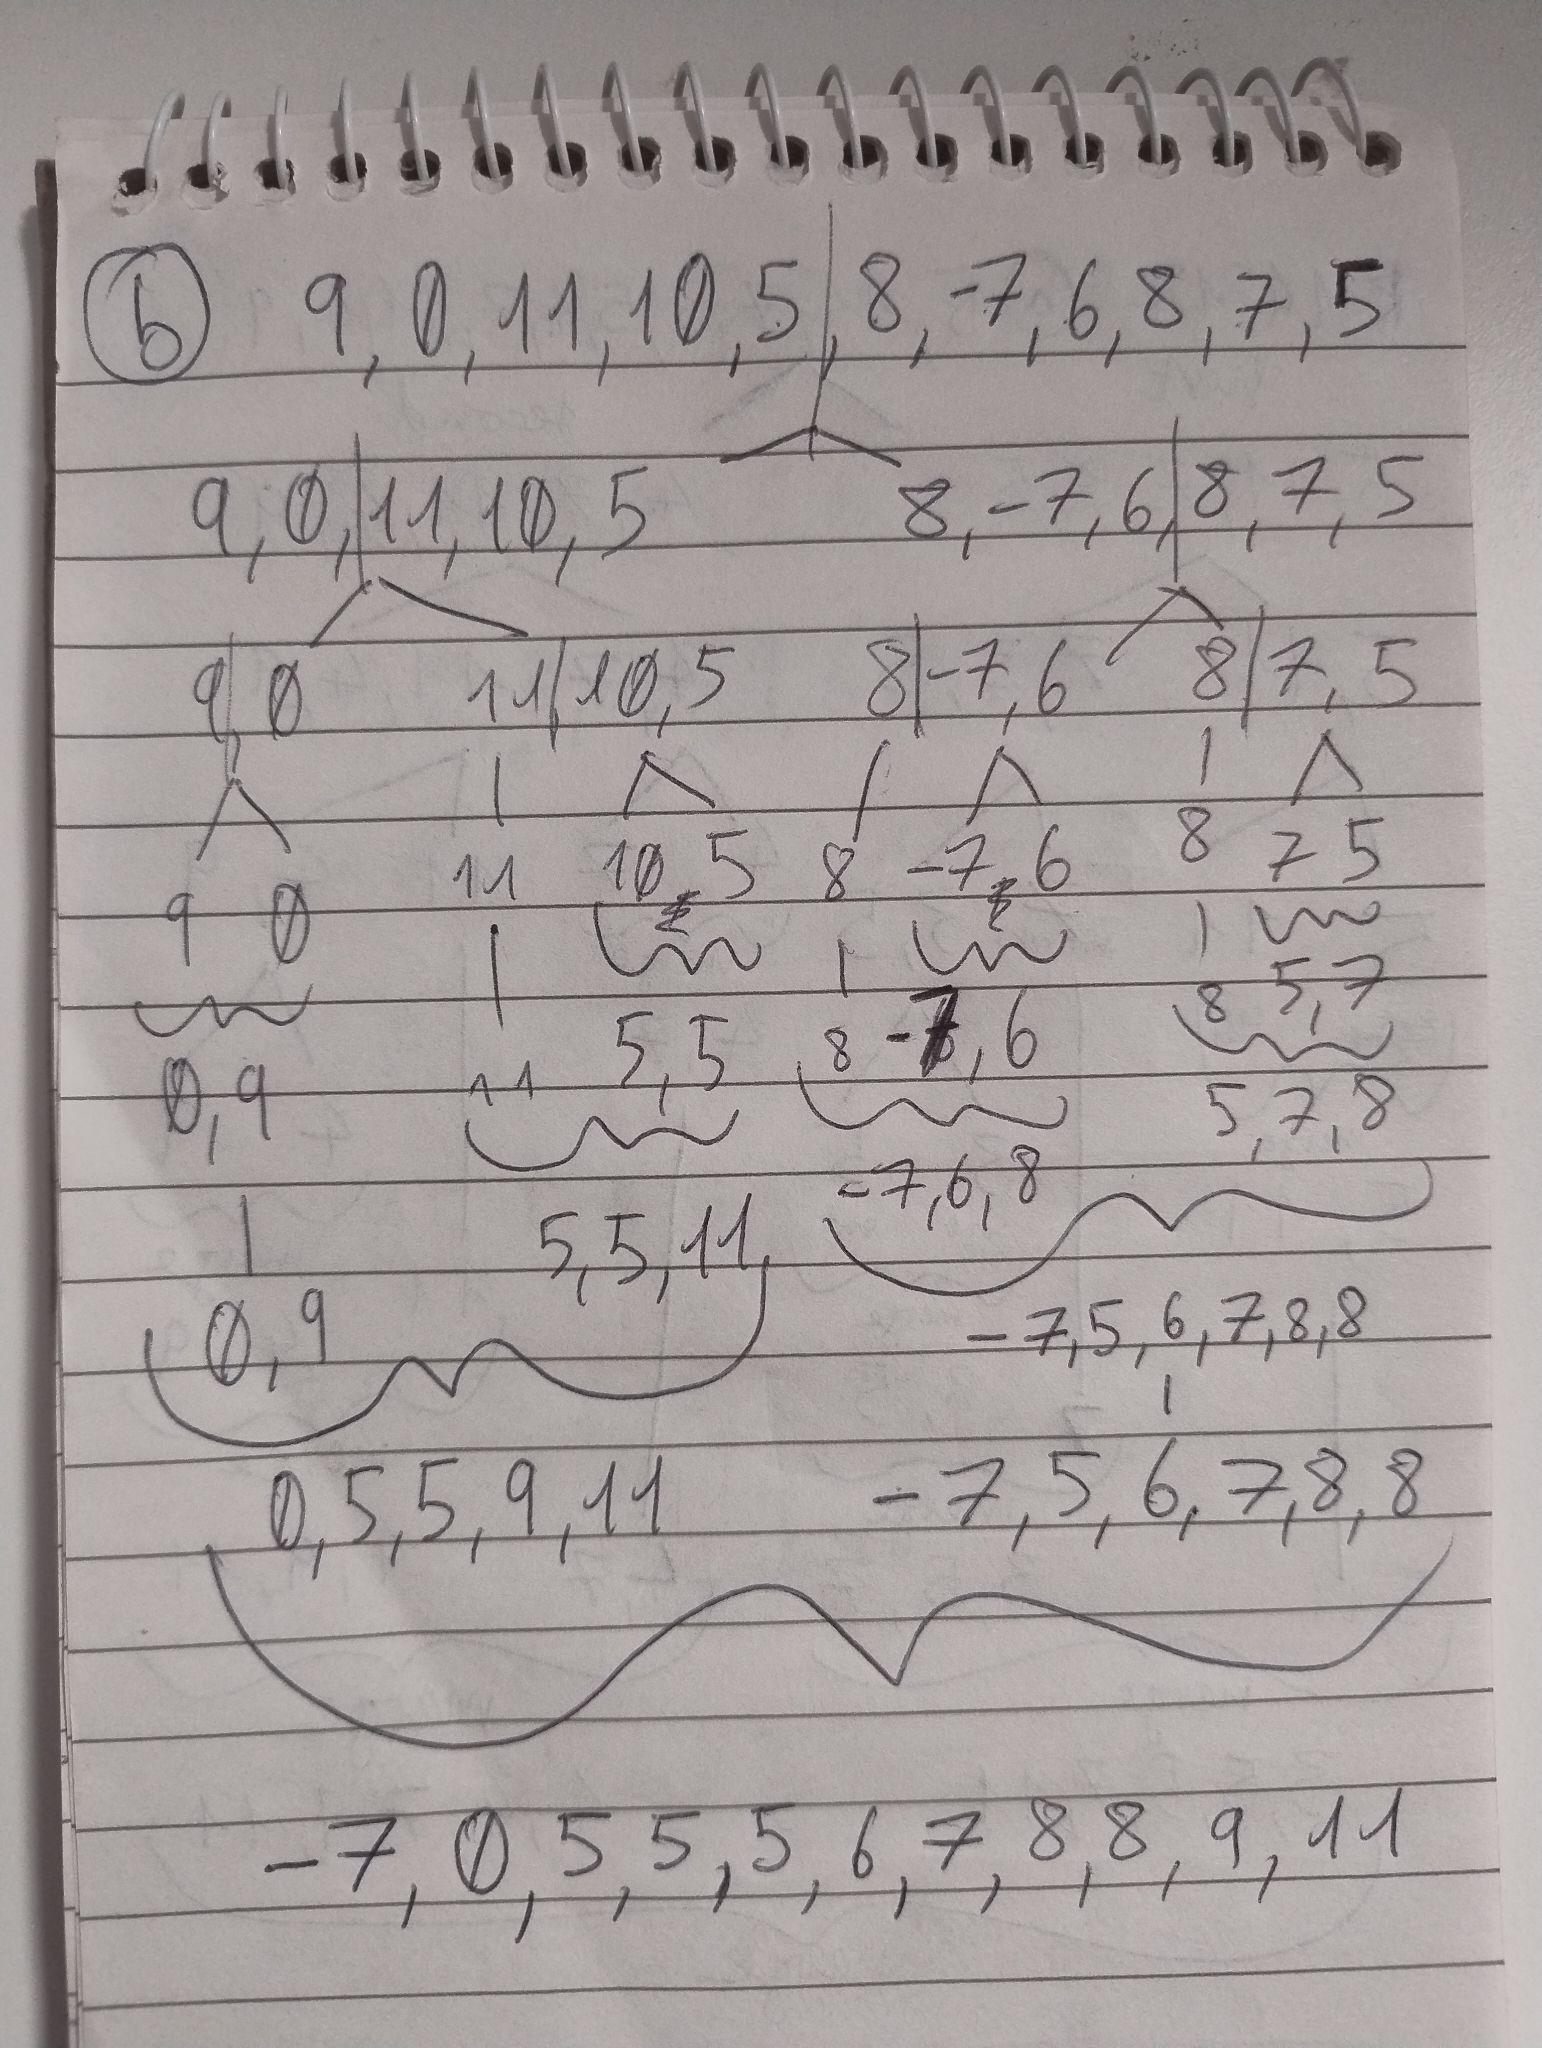 b 9, 0, 11, 10, 5, 8, -7, 6, 8, 7, 5
9, 0, 11, 10, 5 8, -7, 6, 8, 7, 5
9, 0 11, 10, 5 8 -7, 6 8 7, 5
9 0 11 10, 5 8 -7, 6 8 7 5
0, 9 11 5, 5 8 -7, 6 8 5, 7
5, 5, 11, -7, 6, 8 5, 7, 8
0, 9 -7, 5, 6, 7, 8, 8
0, 5, 5, 9, 11 -7, 5, 6, 7, 8, 8
-7, 0, 5, 5, 5, 6, 7, 8, 8, 9, 11